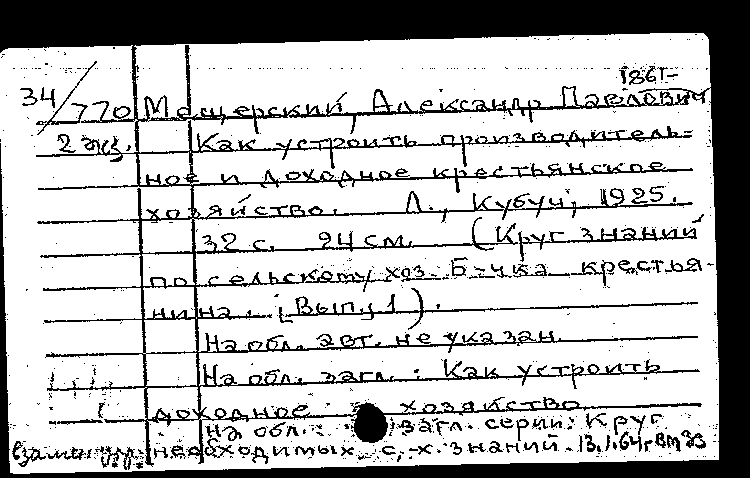 1861-
34/770 Мещерский, Александр Павлович
2 экз. Как устроить производитель-
ное и доходное крестьянское
хозяйство. Л., Кубуч, 1925.
32 с. 24 см. (Круг знаний
по сельскому хоз. Б-чка крестья-
нина. [Вып., 1).
На обл. авт. не указан.
На обл. загл.: Как устроить
доходное хозяйство
На обл.: загл. серии: Круг
необходимых с.-х. знаний. 13.1.64г